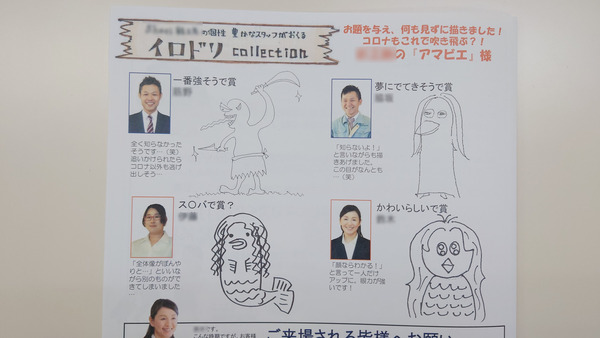 の個性 豊かなスタッフがおくる
イロドリ collection
お題を与え、何も見ずに描きました!
コロナもこれで吹き飛ぶ?!
の『アマビエ』様
一番強そうで賞
全く知らなかった
そうです…(笑)
追いかけられたら
コロナ以外も逃げ
出しそう…
夢にでてきそうで賞
「知らないよ!」
と言いながらも描
きあげました。
この目がなんとも
…(笑)
ス〇パで賞?
「全体像がぼんや
りと…」といいな
がら別のものがで
きてしまいました
…
かわいらしいで賞
「顔ならわかる!」
と言って一人だけ
アップに。眼力が強
いです!
ご来場される皆様へお願い
こんな時期ですが、お客様